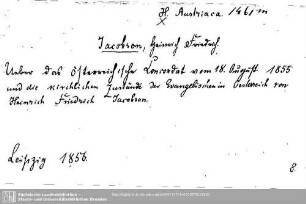 H. Austriaca 1461 m
X
Jacobson, Heinrich Friedrich
Ueber das österreichische Concordat vom 18. August 1855
und die kirchlichen Zustände der Evangelischen in Oesterreich von
Heinrich Friedrich Jacobson.
Leipzig 1856.
8.
Sächsische Landesbibliothek -
Staats- und Universitätsbibliothek Dresden